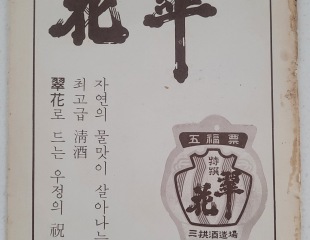 翠花
자연의 물맛이 살아나는
최고급 清酒
翠花로 드는 우정의 祝
五福票
特撰
翠花